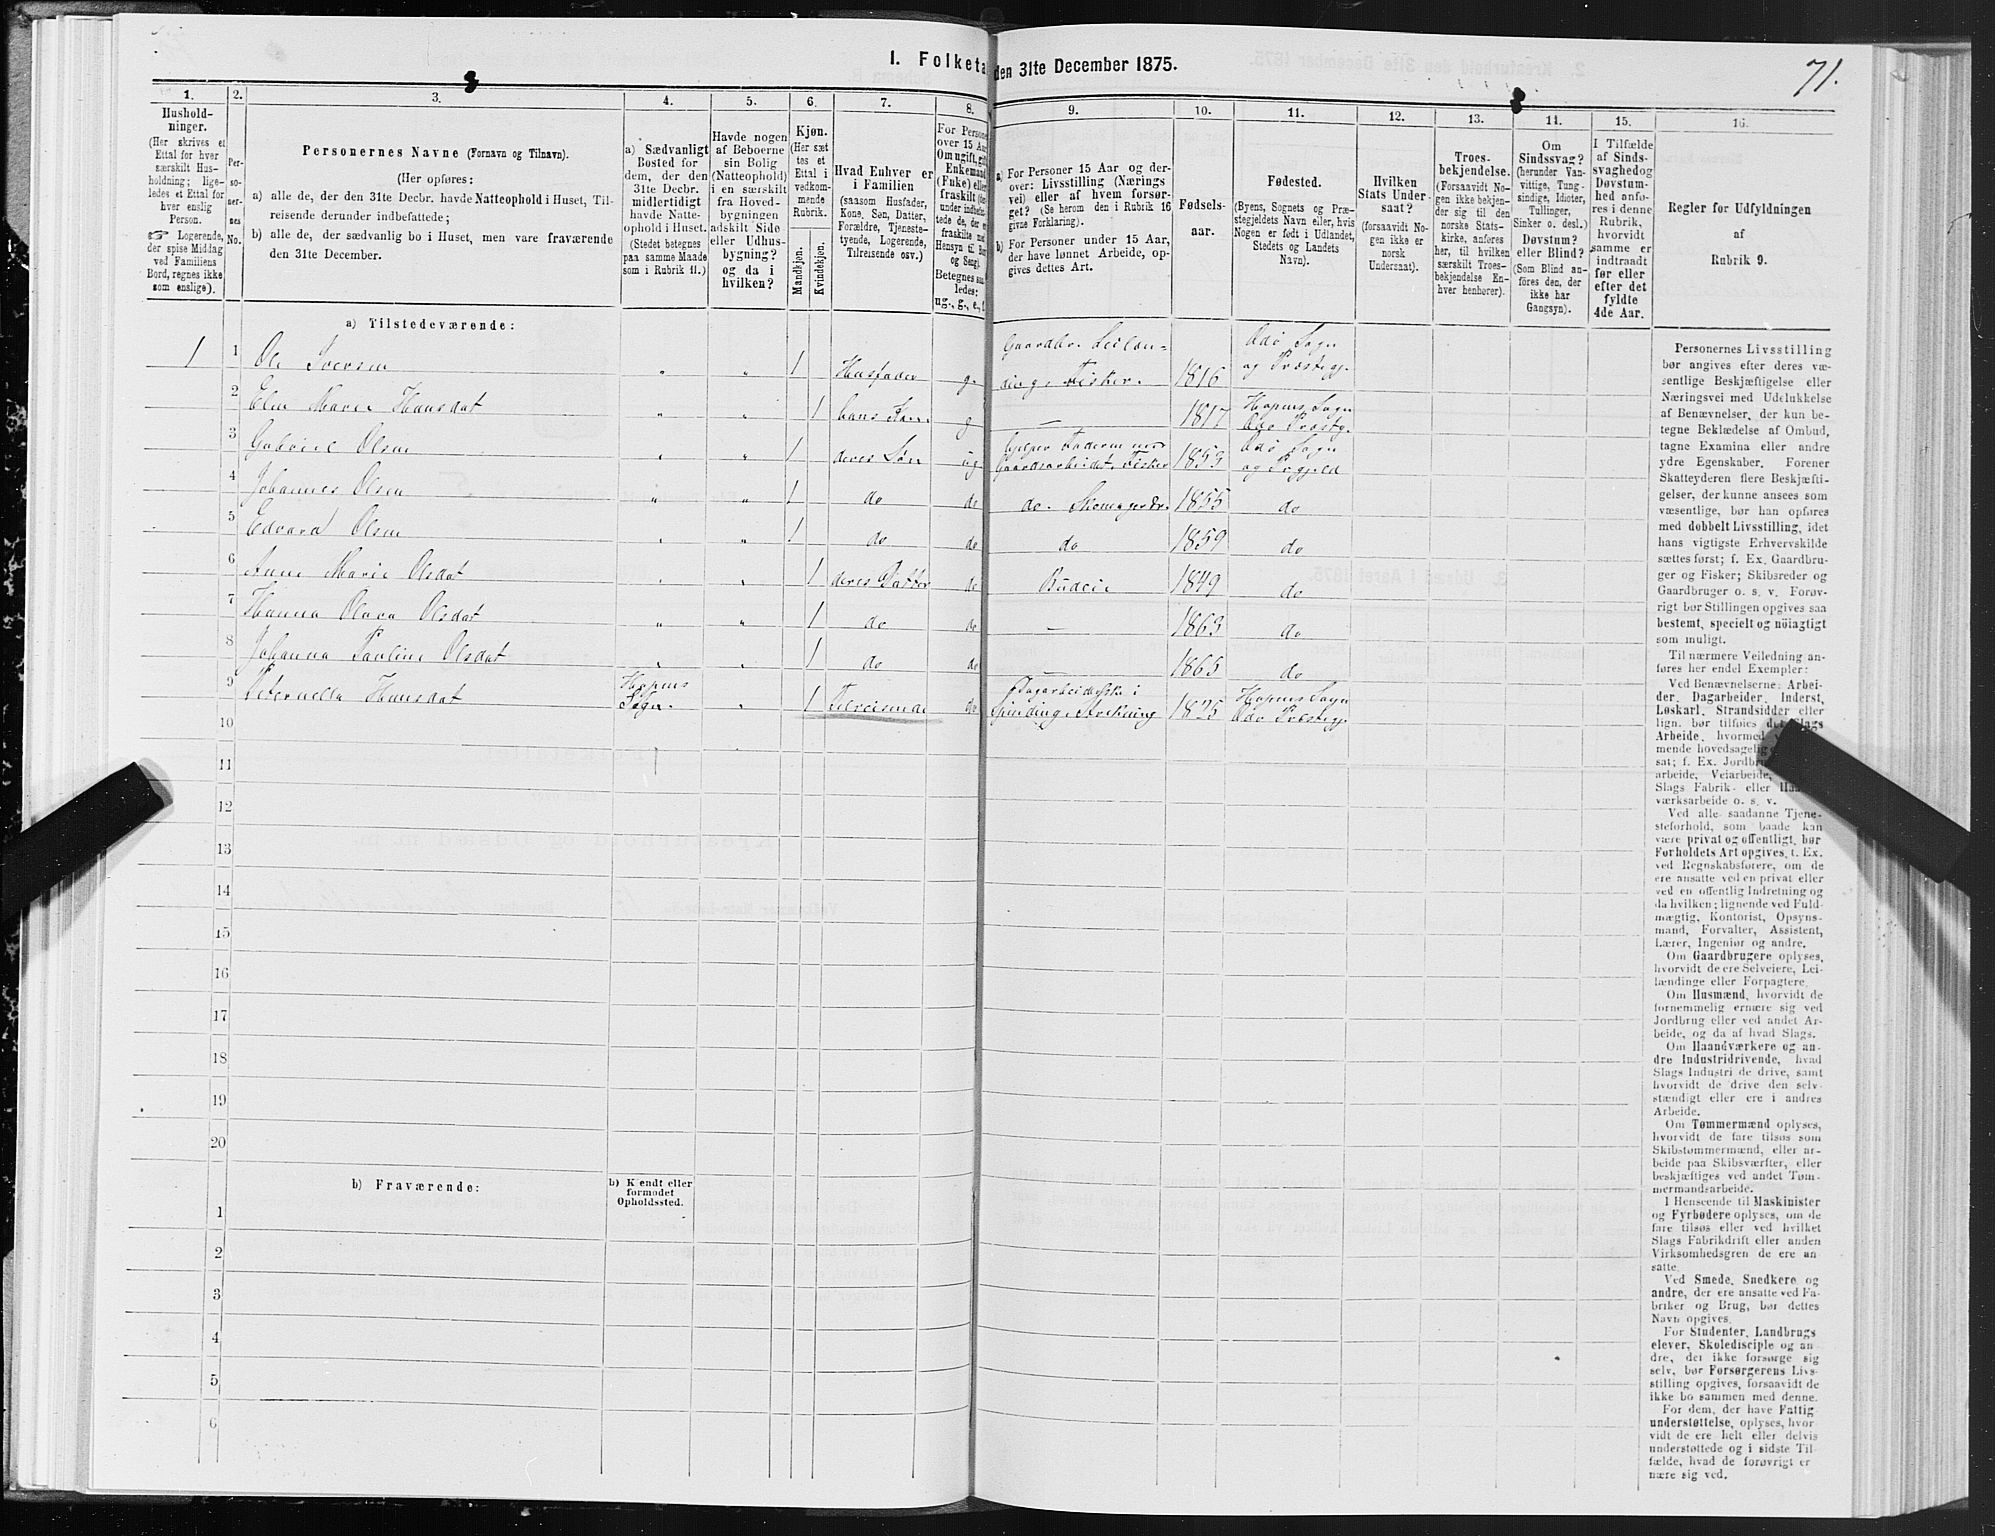 71.
I. Folketæ
den 31te December 1875.
1.
2.
3.
4.
5.
6.
7.
8.
9.
10.
11.
12.
13.
14.
15.
16.
Hushold-
ninger.
(Her skrives et
Ettal for hver
særskilt Hus-
holdning; lige-
ledes et Ettal for
hver enslig
Person.
☞ Logerende,
der spise Middag
ved Familiens
Bord, regnes ikke
som enslige).
Per-
so-
ner-
nes
No.
Personernes Navne (Fornavn og Tilnavn).
(Her opføres:
a) alle de, der den 31te Decbr. havde Natteophold i Huset, Til-
reisende derunder indbefattede;
b) alle de, der sædvanlig bo i Huset, men vare fraværende
den 31te December.
a) Sædvanligt
Bosted for
dem, der den
31te Decbr.
midlertidigt
havde Natte-
ophold i Huset.
(Stedet betegnes
paa samme Maade
som i Rubrik 11.)
Havde nogen
af Beboerne
sin Bolig
(Natteophold)
i en særskilt
fra Hoved-
bygningen
adskilt Side
eller Udhus-
bygning?
og da i
hvilken?
Kjøn.
(Her sæt
tes et
Ettal i
vedkom-
mende
Rubrik.
Mandkjøn.
Kvindekjøn.
Hvad Enhver er
i Familien
(saasom Husfader,
Kone, Søn, Datter,
Forældre, Tjeneste-
tyende, Logerende,
Tilreisende osv.)
For Persone
over 15 Aa
Om ugift, gift,
Enkemand
(Enke) elle
fraskilt
Betegnes saa
ledes:
ug., g., e., f.
a) For Personer 15 Aar og der-
over: Livsstilling (Nærings
vei) eller af hvem forsør-
get? (Se herom den i Rubrik 16
givne Forklaring).
b) For Personer under 15 Aar,
der have lønnet Arbeide, op-
gives dettes Art.
Fødsels-
aar.
Fødested.
(Byens, Sognets og Præ-
stegjeldets Navn eller, hvis
Nogen er født i Udlandet,
Stedets og Landets
Navn).
Hvilken
Stats Under-
saat?
(forsaavidt No-
gen ikke er
norsk
Undersaat).
Troes-
bekjendelse.
(Forsaavidt No-
gen ikke bekjen-
der sig til den
norske Stats-
kirke, anføres
her, til hvilken
særskilt Troes-
bekjendelse En-
hver henhører).
Om
Sindssvag?
(herunder Van-
vittige, Tung-
sindige, Idioter,
Tullinger,
Sinker o. desl.)
Døvstum?
eller Blind?
(Som Blind an-
føres den, der
ikke har
Gangsyn).
I Tilfælde
af Sinds-
svaghed og
Døvstum-
hed anfø-
res i denne
Rubrik,
hvorvidt
samme er
indtraadt
før eller
efter det
fyldte
4de Aar.
Regler for Udfyldningen
af
Rubrik 9.
a) Tilstedeværende:
1 1 Ole Iversen " " 1 Husfader g. Gaardbr. Leilæn-
ding, Fisker. 1816 Odø Sogn
og Præstegj.
2 Elen Marie Hansdat " " 1 hans Kone g — 1817 Hopens Sogn
Odø Præstg.
3 Gabriel Olsen " " 1 deres Søn ug hjelper Faderen med
Gaardsarbeidet, Fisker 1853 Odø Sogn
og Prgjeld
4 Johannes Olsen " " 1 do do do. Skomager 1855 do
5 Edvard Olsen " " 1 do do do 1859 do
6 Anne Marie Olsdat " " 1 deres Datter do Budeie 1849 do
7 Hanna Olava Olsdat " " 1 do do — 1863 do
8 Johanna Pauline Olsdat " " 1 do do — 1865 do
9 Peternella Hansdat Hopens
Sogn. " 1 Tilreisende do Dagarbeiderske i
Spinding, Strikning Hopens Sogn
Odø Præstegj.
10
11
12
13
14
15
16
17
18
19
20
b) Fraværende:
b) Kjendt eller
formodet
Opholdssted.
1
2
3
4
5
6
Personernes Livsstilling
bør angives efter deres væ-
sentlige Beskjæftigelse eller
Næringsvei med Udelukkelse
af Benævnelser, der kun be-
tegne Beklædelse af Ombud,
tagne Examina eller andre
ydre Egenskaber. Forener
Skatteyderen flere Beskjæfti-
gelser, der kunne ansees som
væsentlige, bør han opføres
med dobbelt Livsstilling, idet
hans vigtigste Erhvervskilde
sættes først; f. Ex. Gaardbru-
ger og Fisker; Skibsreder og
Gaardbruger o. s. v. Forøv-
rigt bør Stillingen opgives saa
bestemt, specielt og nöiagtigt
som muligt.
Til nærmere Veiledning an-
føres her endel Exempler:
Ved Benævnelserne: Arbei-
der, Dagarbeider, Inderst,
Løskarl, Strandsidder eller
lign. bør tilføies det Slags
Arbeide, hvormed
mende hovedsagelig
sat; f. Ex. Jordbr
arbeide, Veiarbeide,
Slags Fabrik- eller
værksarbeide o. s. v.
Ved alle saadanne Tjene-
steforhold, som baade kan
være privat og offentligt, bør
Forholdets Art opgives, t. Ex.
ved Regnskabsførere, om de
ere ansatte ved en privat eller
ved en offentlig Indretning og
da hvilken; lignende ved Fuld-
mægtig, Kontorist, Opsyns-
mand, Forvalter, Assistent,
Lærer, Ingeniør og andre.
Om Gaardbrugere oplyses,
hvorvidt de ere Selveiere, Lei-
lændinge eller Forpagtere.
Om Husmænd, hvorvidt de
fornemmelig ernære sig ved
Jordbrug eller ved andet Ar-
beide, og da af hvad Slags.
Om Haandværkere og an-
dre Industridrivende, hvad
Slags Industri de drive, samt
hvorvidt de drive den selv-
stændigt eller ere i andres
Arbeide.
Om Tømmermænd oplyses,
hvorvidt de fare tilsøs som
Skibstømmermænd, eller ar-
beide paa Skibsværfter, eller
beskjæftiges ved andet Tøm-
mermandsarbeide.
I Henseende til Maskinister
og Fyrbødere oplyses, om de
fare tilsøs eller ved hvilket
Slags Fabrikdrift eller anden
Virksomhedsgren de ere an
satte.
Ved Smede, Snedkere og
andre, der ere ansatte ved Fa-
briker og Brug, bør dettes
Navn opgives.
For Studenter, Landbrugs
elever, Skoledisciple og an-
dre, der ikke forsørge sig
selv, bør Forsørgerens Livs-
stilling opgives, forsaavidt de
ikke bo sammen med denne.
For dem, der have Fattig
understøttelse, oplyses, hvor-
vidt de ere helt eller delvis
understøttede og i sidste Til-
fælde, hvad de forøvrigt er
nære sig ved.